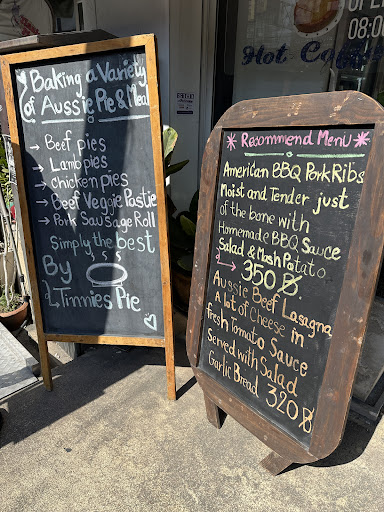 Baking a Variety
of Aussie Pie & Meal
→ Beef pies
→ Lamb pies
→ chicken pies
→ Beef Veggie Pastie
→ Pork Sausage Roll
Simply the best
By
Tinnies Pie
OPEN
08:00
Hot
Recommend Menu
American BBQ Pork Ribs
Moist and Tender just
of the bone with
Homemade BBQ Sauce
Salad & Mash Potato
→ 350 ฿
Aussie Beef Lasagna
A lot of Cheese in
fresh Tomato Sauce
Served with Salad
Garlic Bread 320 ฿